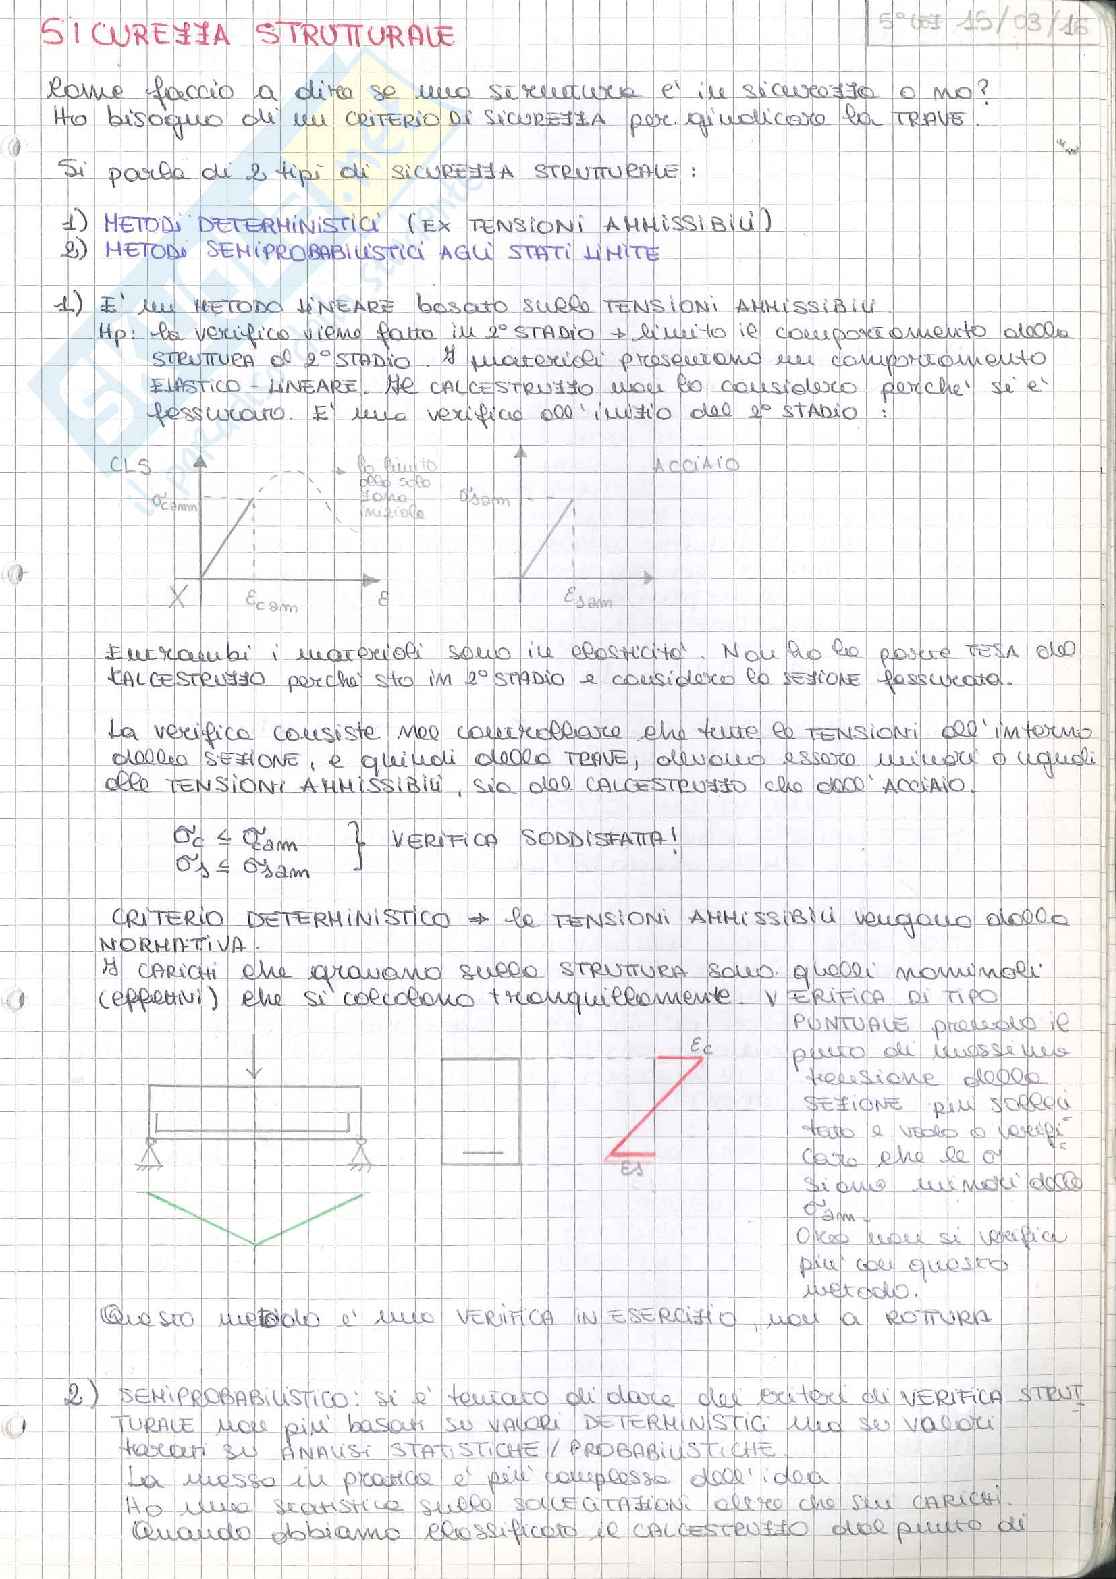 SICUREZZA STRUTTURALE
5° lez 15/03/16
Come faccio a dire se una struttura e' in sicurezza o no?
Ho bisogno di un CRITERIO DI SICUREZZA per giudicare la TRAVE.
Si parla di 2 tipi di SICUREZZA STRUTTURALE:
1) METODI DETERMINISTICI (EX TENSIONI AMMISSIBILI)
2) METODI SEMIPROBABILISTICI AGLI STATI LIMITE
1) E' un METODO LINEARE basato sulle TENSIONI AMMISSIBILI
Hp: la verifica viene fatta in 2° STADIO → limito il comportamento della
STRUTTURA al 2° STADIO. I materiali presentano un comportamento
ELASTICO-LINEARE. Il CALCESTRUZZO non lo considero perche' si e'
fessurato. E' una verifica all'inizio del 2° STADIO:
CLS
σcamm
lo limito
alla sola
zona
iniziale
X
εcam
ε
ACCIAIO
σsam
εsam
Entrambi i materiali sono in elasticita'. Non ho la parte TESA del
CALCESTRUZZO perche' sto in 2° STADIO e considero la SEZIONE fessurata.
La verifica consiste nel controllare che tutte le TENSIONI all'interno
della SEZIONE, e quindi della TRAVE, devono essere minori o uguali
alle TENSIONI AMMISSIBILI, sia del CALCESTRUZZO che dell'ACCIAIO.
σc ≤ σcam
σs ≤ σsam
} VERIFICA SODDISFATTA!
CRITERIO DETERMINISTICO → le TENSIONI AMMISSIBILI vengono dalla
NORMATIVA.
I CARICHI che gravano sulla STRUTTURA sono quelli nominali
(effettivi) che si calcolano tranquillamente. VERIFICA DI TIPO
PUNTUALE prendo il
punto di massima
tensione della
SEZIONE piu' solleci
tata e vado a verifi-
care che le σ
siano minori delle
σam.
Ora non si verifica
piu' con questo
metodo.
εc
εs
Questo metodo e' una VERIFICA IN ESERCIZIO, non a ROTTURA
2) SEMIPROBABILISTICO: si e' tentato di dare dei criteri di VERIFICA STRUT
TURALE non piu' basati su VALORI DETERMINISTICI ma su valori
tarati su ANALISI STATISTICHE/PROBABILISTICHE
La messa in pratica e' piu' complessa dell'idea
Ho una statistica sulle SOLLECITAZIONI oltre che sui CARICHI.
Quando abbiamo classificato il CALCESTRUZZO dal punto di